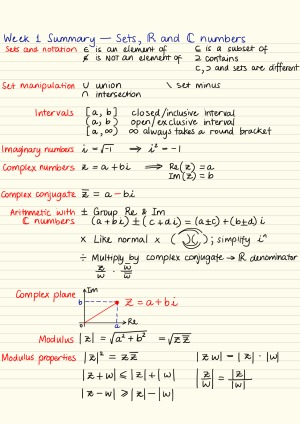 Week 1 Summary — Sets, ℝ and ℂ numbers
Sets and notation ∈ is an element of ⊆ is a subset of
∉ is NOT an element of ⊇ contains
⊂,⊃ and sets are different
Set manipulation ∪ union \ set minus
∩ intersection
Intervals [a, b] closed/inclusive interval
(a, b) open/exclusive interval
[a, ∞) ∞ always takes a round bracket
Imaginary numbers i = √-1 ⇒ i² = -1
Complex numbers z = a + bi ⟹ Re(z) = a
Im(z) = b
Complex conjugate z̅ = a - bi
Arithmetic with ± Group Re & Im
ℂ numbers (a + bi) ± (c + di) = (a±c) + (b±d) i
× Like normal × ( )( ); simplify iⁿ
÷ Multiply by complex conjugate → ℝ denominator
z/w · w̅/w̅
Complex plane Im
b z = a + bi
a Re
Modulus |z| = √a² + b² = √zz̅
Modulus properties |z|² = zz̅ |zw| = |z| · |w|
|z + w| ≤ |z| + |w| |z/w| = |z|/|w|
|z - w| ≥ |z| - |w|